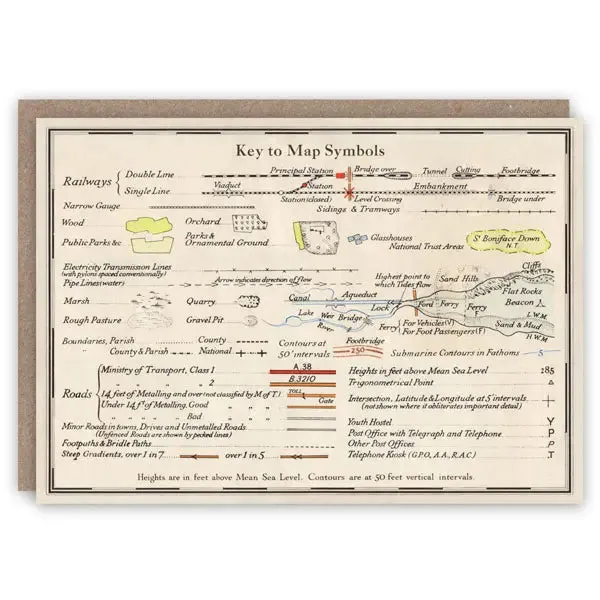 Key to Map Symbols
Railways { Double Line Principal Station Bridge over Tunnel Cutting Footbridge
Station
Single Line Viaduct Station (closed) Level Crossing Embankment Bridge under
Narrow Gauge Sidings & Tramways
Wood Orchard
Public Parks &c Parks & Ornamental Ground Glasshouses National Trust Areas St Boniface Down N.T.
Electricity Transmission Lines
(with pylons spaced conventionally)
Pipe Lines (water) Arrow indicates direction of flow
Highest point to which Tides flow Sand Hills Cliffs
Flat Rocks
Marsh Quarry Canal Aqueduct Lock Ford Ferry Ferry Beacon
L.W.M.
Rough Pasture Gravel Pit Lake Weir Bridge River Ferry { For Vehicles (V) For Foot Passengers (F) Sand & Mud
H.W.M.
Boundaries, Parish County
County & Parish National
Contours at 50' intervals Footbridge 250 Submarine Contours in Fathoms 5
Roads { Ministry of Transport, Class 1 A.38
" " " 2 B.3210
14 feet of Metalling and over (not classified by M. of T.) TOLL
Under 14 ft of Metalling, Good Gate
" " " Bad
Minor Roads in towns, Drives and Unmetalled Roads
(Unfenced Roads are shown by pecked lines)
Footpaths & Bridle Paths
Steep Gradients, over 1 in 7 over 1 in 5
Heights in feet above Mean Sea Level 285
Trigonometrical Point
Intersection, Latitude & Longitude at 5' intervals
(not shown where it obliterates important detail)
Youth Hostel Y
Post Office with Telegraph and Telephone P
Other Post Offices P
Telephone Kiosk (G.P.O, A.A., R.A.C.) T
Heights are in feet above Mean Sea Level. Contours are at 50 feet vertical intervals.